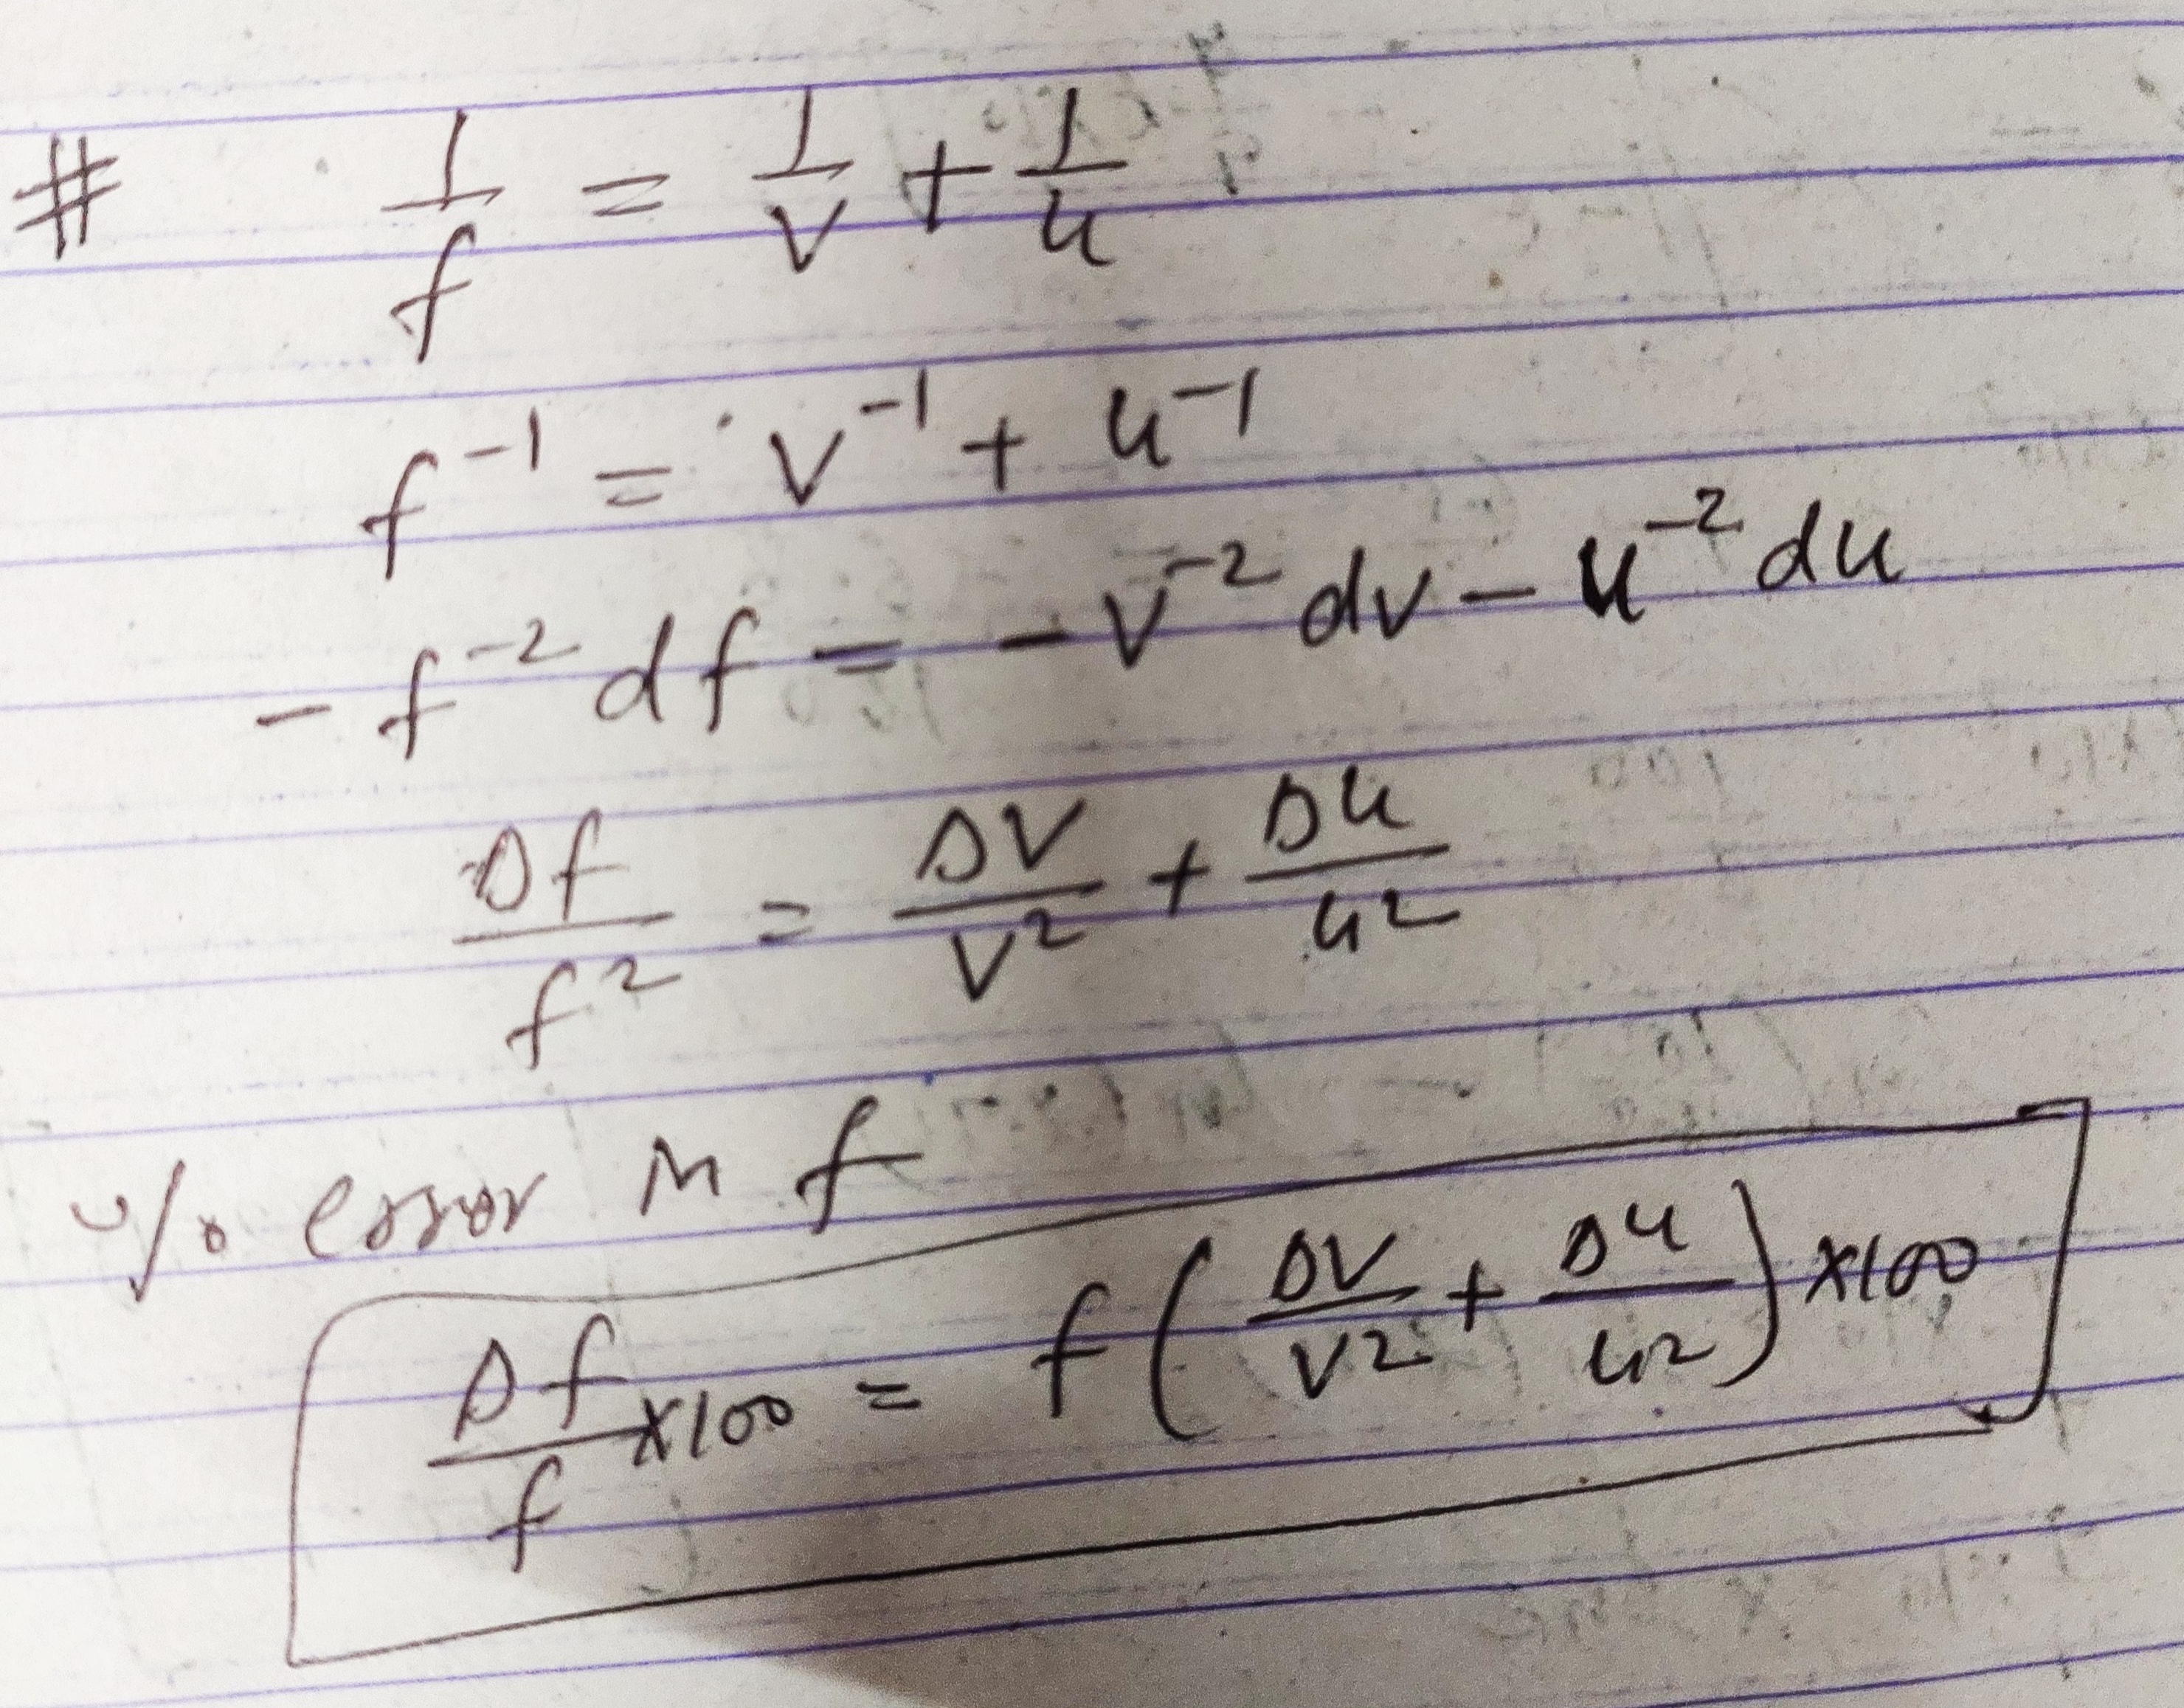 # 1/f = 1/v + 1/u
f⁻¹ = v⁻¹ + u⁻¹
- f⁻² df = - v⁻² dv - u⁻² du
Δf/f² = Δv/v² + Δu/u²
% error in f
Δf/f ×100 = f(Δv/v² + Δu/u²) ×100